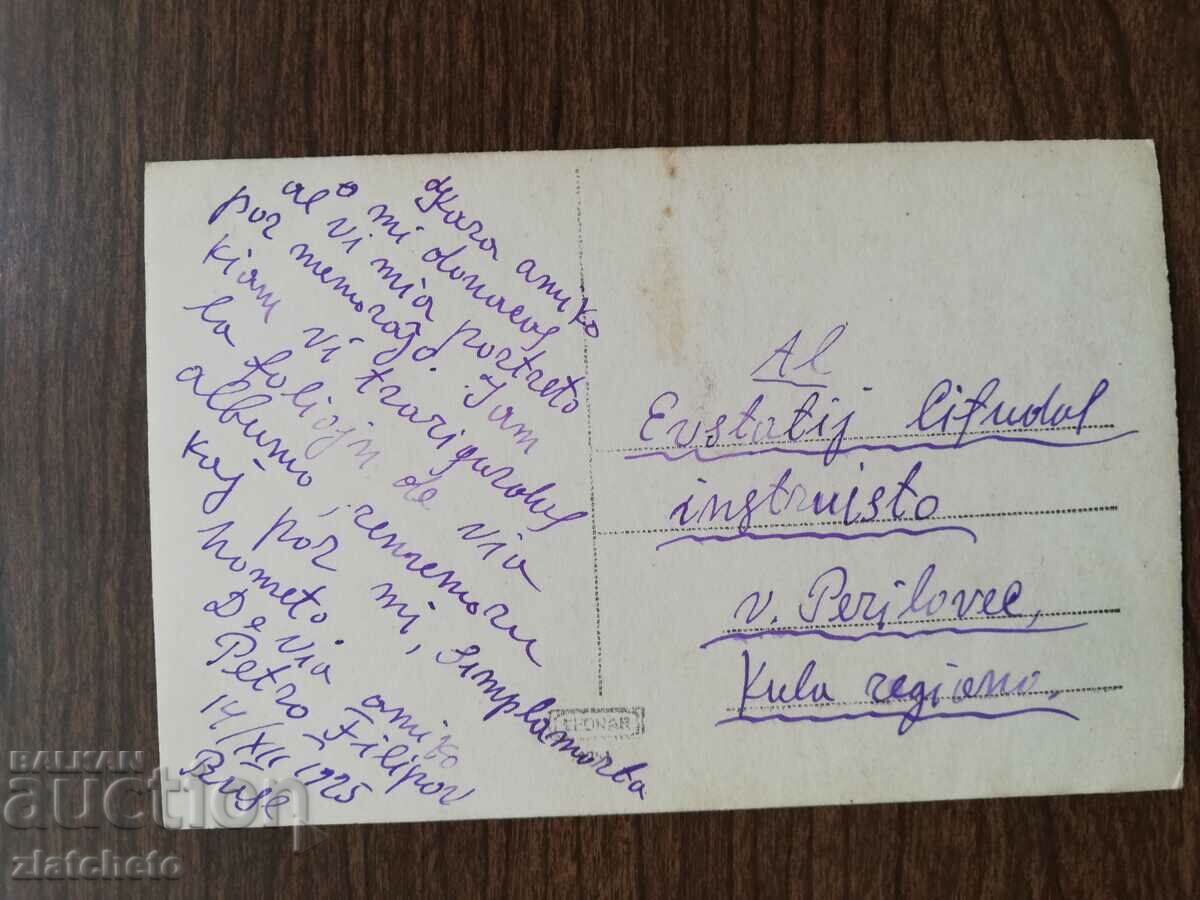 Kara amiko
mi donacas
al vi mia portreto
por memorajo. Iam
kiam vi trarigardos
la foliojn de via
albumo, rememoru
kaj por mi, simplamorta
hometo.
De via amiko
Petro Filipov
14/XII 1925
Ruse
Al
Evstatij
instruisto
v. Perilovec,
Kula regiono.
LEONAR
BALKAN
auction
zlatcheto